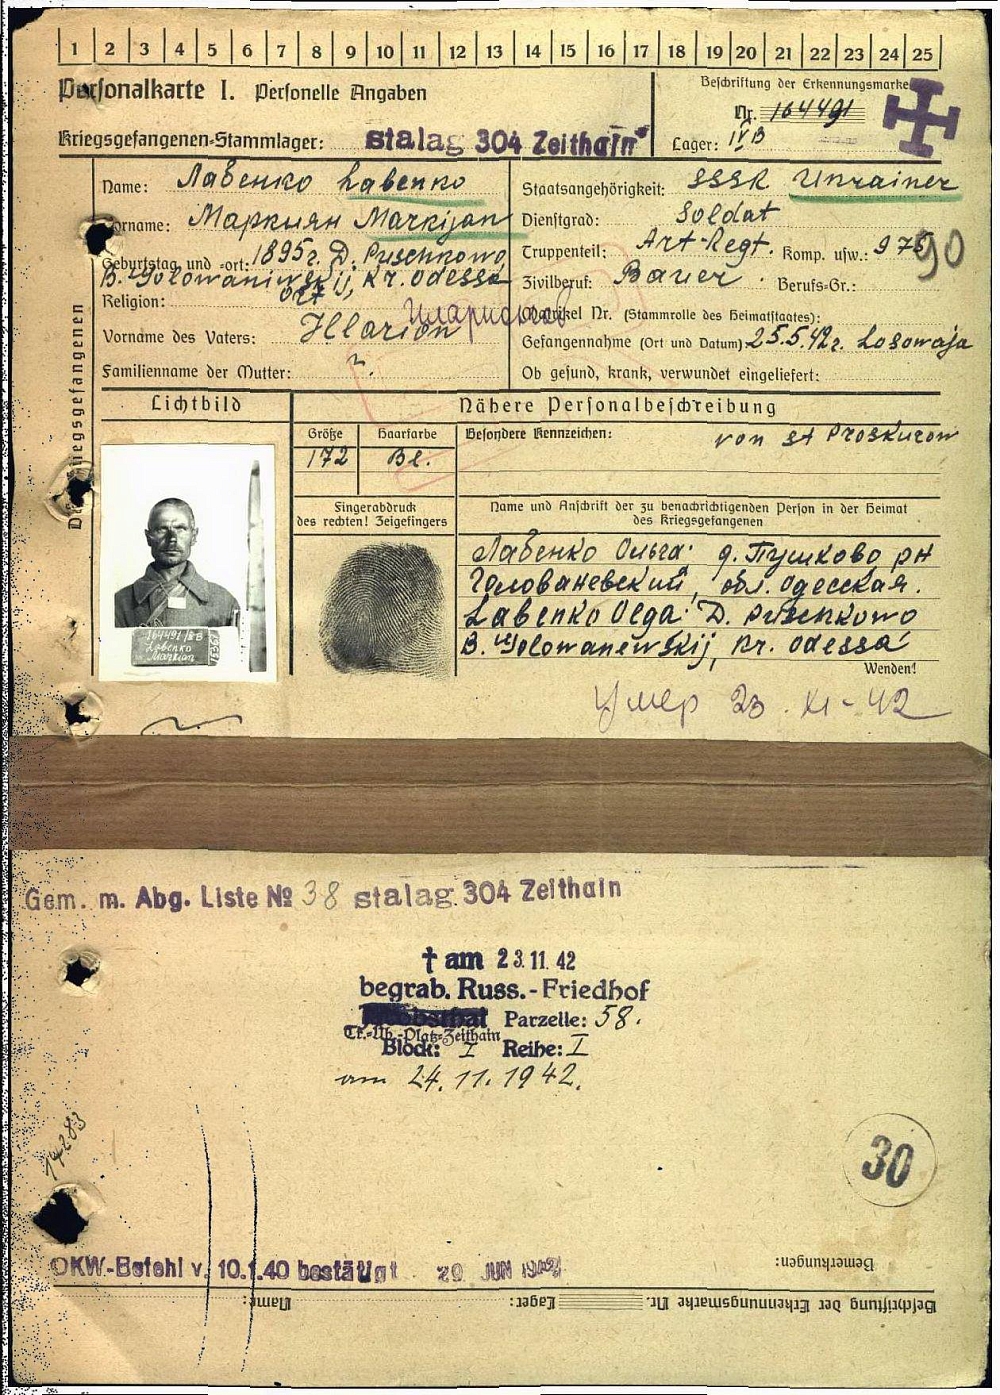 1 2 3 4 5 6 7 8 9 10 11 12 13 14 15 16 17 18 19 20 21 22 23 24 25
Personalkarte I. Personelle Angaben
Beschriftung der Erkennungsmarke
Nr. 164491
Kriegsgefangenen-Stammlager: stalag 304 Zeithain
Lager: IV B
Des Kriegsgefangenen
Name: Лабенко Labenko
Vorname: Маркиян Markijan
Geburtstag und -ort: 1895г. D. Puschkowo
B. Golowaniewskij, Kr. Odessa
Religion: ort
Vorname des Vaters: Illarion Иларионов
Familienname der Mutter: ?
Staatsangehörigkeit: SSSR Ukrainer
Dienstgrad: Soldat
Truppenteil: Art-Regt. Komp. usw.: 975
90
Zivilberuf: Bauer Berufs-Gr.:
Matrikel Nr. (Stammrolle des Heimatstaates):
Gefangennahme (Ort und Datum): 25.5.42г. Losowaja
Ob gesund, krank, verwundet eingeliefert:
Lichtbild
Nähere Personalbeschreibung
Größe Haarfarbe Besondere Kennzeichen: von St Proskurow
172 Bl.
Fingerabdruck
des rechten! Zeigefingers
Name und Anschrift der zu benachrichtigenden Person in der Heimat
des Kriegsgefangenen
Лабенко Ольга: д. Пушково рн
Голованевский, обл. Одесская.
Labenko Olga: D. Puschkowo
B. Golowanewskij, Kr. Odessa
Wenden!
164491 IVB
Labenko
Markian
Умер 23. XI-42
Gem. m. Abg. Liste № 38 stalag 304 Zeithain
† am 23.11.42
begrab. Russ.-Friedhof
Jacobsthal Parzelle: 58.
Tr.-Üb.-Platz-Zeithain
Block: I Reihe: I
am 24.11.1942.
14283
30
OKW-Befehl v. 10.1.40 bestätigt 29 JUN 1942
Bemerkungen:
Beschriftung der Erkennungsmarke Nr. Lager: Name: